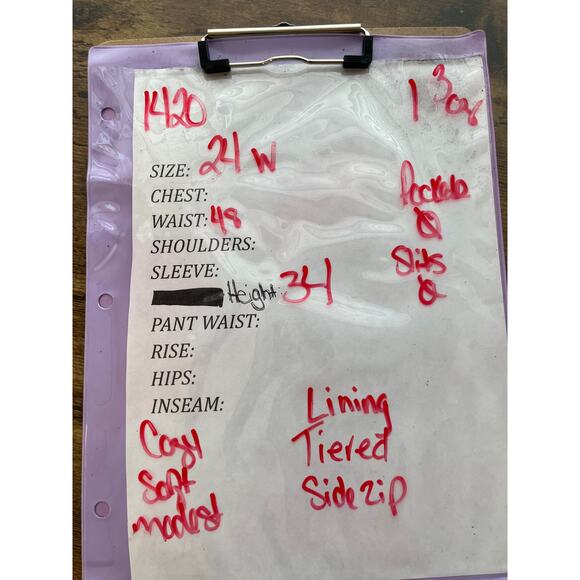 1420
1 3oz
SIZE: 24 W
CHEST:
Pockets
WAIST: 48
0
SHOULDERS:
Slits
SLEEVE:
0
Height: 34
PANT WAIST:
RISE:
HIPS:
INSEAM:
Cozy
Soft
modest
Lining
Tiered
Side zip